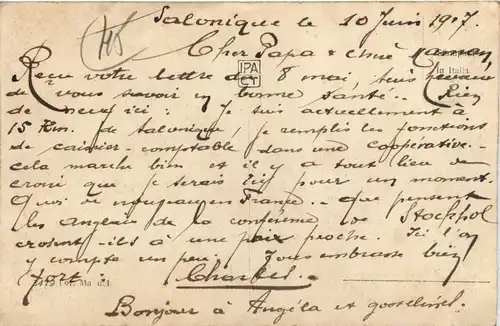 Salonique le 10 Juin 1917.
Cher Papa & chère Maman,
Reçu votre lettre du 8 mai, suis heureux
de vous savoir en bonne santé. - Rien
de neuf ici : Je suis actuellement à
15 Km. de Salonique, je remplis les fonctions
de caissier-comptable dans une coopérative. -
cela marche bien et il y a tout lieu de
croire que je serais ici pour un moment.
Quoi de nouveau en France. - que pensent
les anglais de la conférence de Stockhol
croient-ils à une paix proche. Ici l'on
y compte un peu. Vous embrasse bien
fort : Charles. -
Bonjour à Angéla et
IPA
CT
in Italia